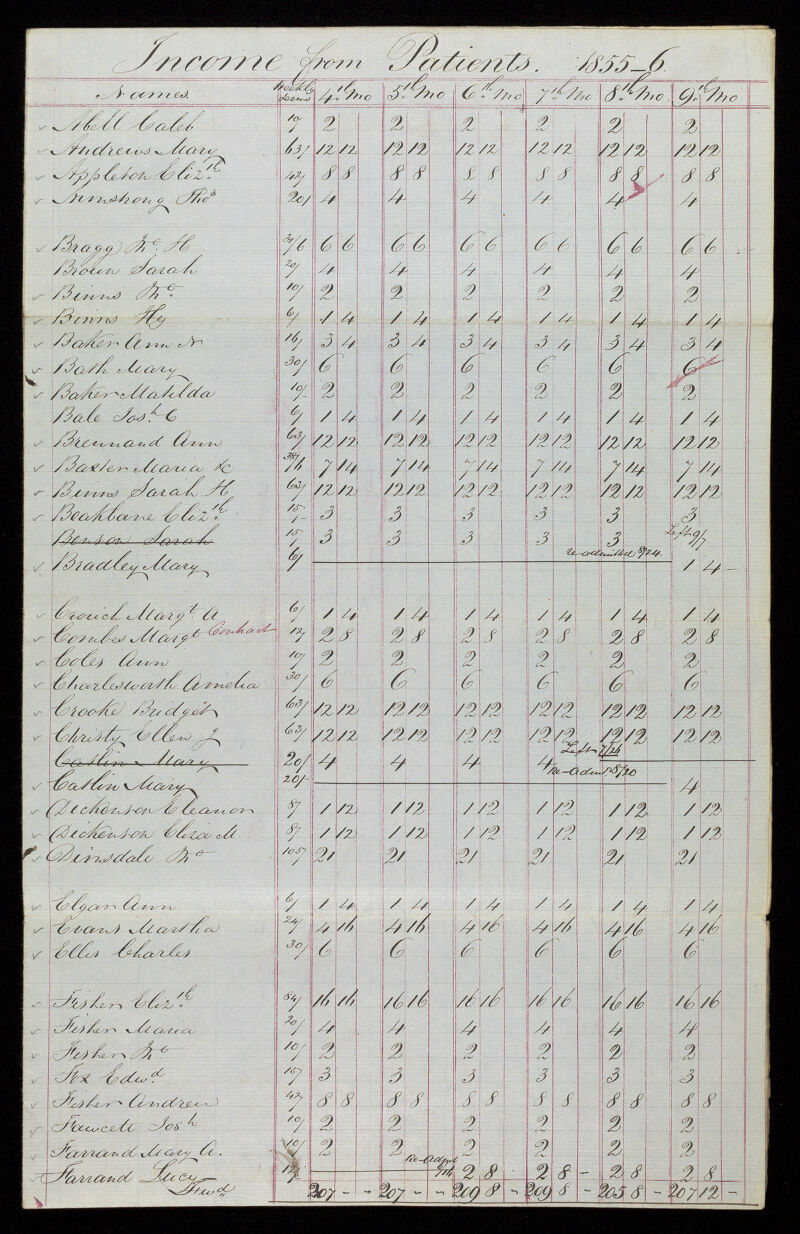 Income from Patients. 1855-6
Names Weekly Terms 4th Mo 5th Mo 6th Mo 7th Mo 8th Mo 9th Mo
Abell Caleb 10/ 2 2 2 2 2 2
Andrews Mary 63/ 12 12 12 12 12 12 12 12 12 12 12 12
Appleton Elizth 42/ 8 8 8 8 8 8 8 8 8 8 8 8
Armstrong Thos 20/ 4 4 4 4 4 4
Bragg Jno H 31/6 6 6 6 6 6 6 6 6 6 6 6 6
Brown Sarah 20/ 4 4 4 4 4 4
Binns Jno 10/ 2 2 2 2 2 2
Binns Hy 6/ 1 4 1 4 1 4 1 4 1 4 1 4
Baker Ann N 16/ 3 4 3 4 3 4 3 4 3 4 3 4
Bath Mary 30/ 6 6 6 6 6 6
Baker Matilda 10/- 2 2 2 2 2 2
Bale Josh C 6/ 1 4 1 4 1 4 1 4 1 4 1 4
Brennand Ann 63/ 12 12 12 12 12 12 12 12 12 12 12 12
Baxter Maria &c 38/6 7 14 7 14 7 14 7 14 7 14 7 14
Binns Sarah H 63/ 12 12 12 12 12 12 12 12 12 12 12 12
Beakbane Elizth 15/- 3 3 3 3 3 3
Benson Sarah 15/ 3 3 3 3 3 Left 9/7
Bradley Mary 6/ re-admitted 8/24 1 4 -
Crouch Margt A 6/ 1 4 1 4 1 4 1 4 1 4 1 4
Combes Margt Contract 12/ 2 8 2 8 2 8 2 8 2 8 2 8
Coles Ann 10/ 2 2 2 2 2 2
Charlesworth Amelia 30/ 6 6 6 6 6 6
Crooke Bridget 63/ 12 12 12 12 12 12 12 12 12 12 12 12
Christy Ellen J 63/ 12 12 12 12 12 12 12 12 12 12 12 12
Catlin Mary 20/ 4 4 4 4 Left 7/26
Catlin Mary 20/- Re-Admd 8/20 4
Dickenson Eleanor 8/ 1 12 1 12 1 12 1 12 1 12 1 12
Dickenson Eliza M 8/ 1 12 1 12 1 12 1 12 1 12 1 12
Dimsdale Jno 105/ 21 21 21 21 21 21
Elgar Ann 6/ 1 4 1 4 1 4 1 4 1 4 1 4
Evans Martha 24/ 4 16 4 16 4 16 4 16 4 16 4 16
Ellis Charles 30/ 6 6 6 6 6 6
Fisher Elizth 84/ 16 16 16 16 16 16 16 16 16 16 16 16
Fisher Maria 20/ 4 4 4 4 4 4
Fisher Jno 10/ 2 2 2 2 2 2
Fox Edwd 15/ 3 3 3 3 3 3
Fisher Andrew 42/ 8 8 8 8 8 8 8 8 8 8 8 8
Fawcett Josh 10/ 2 2 2 2 2 2
Farrand Mary A. 10/ 2 2 2 2 2 2
Farrand Lucy 12/ Re-Admd 2 8 2 8 - 2 8 2 8
Fwd 207 - - 207 - - 209 8 - 209 8 - 205 8 - 207 12 -